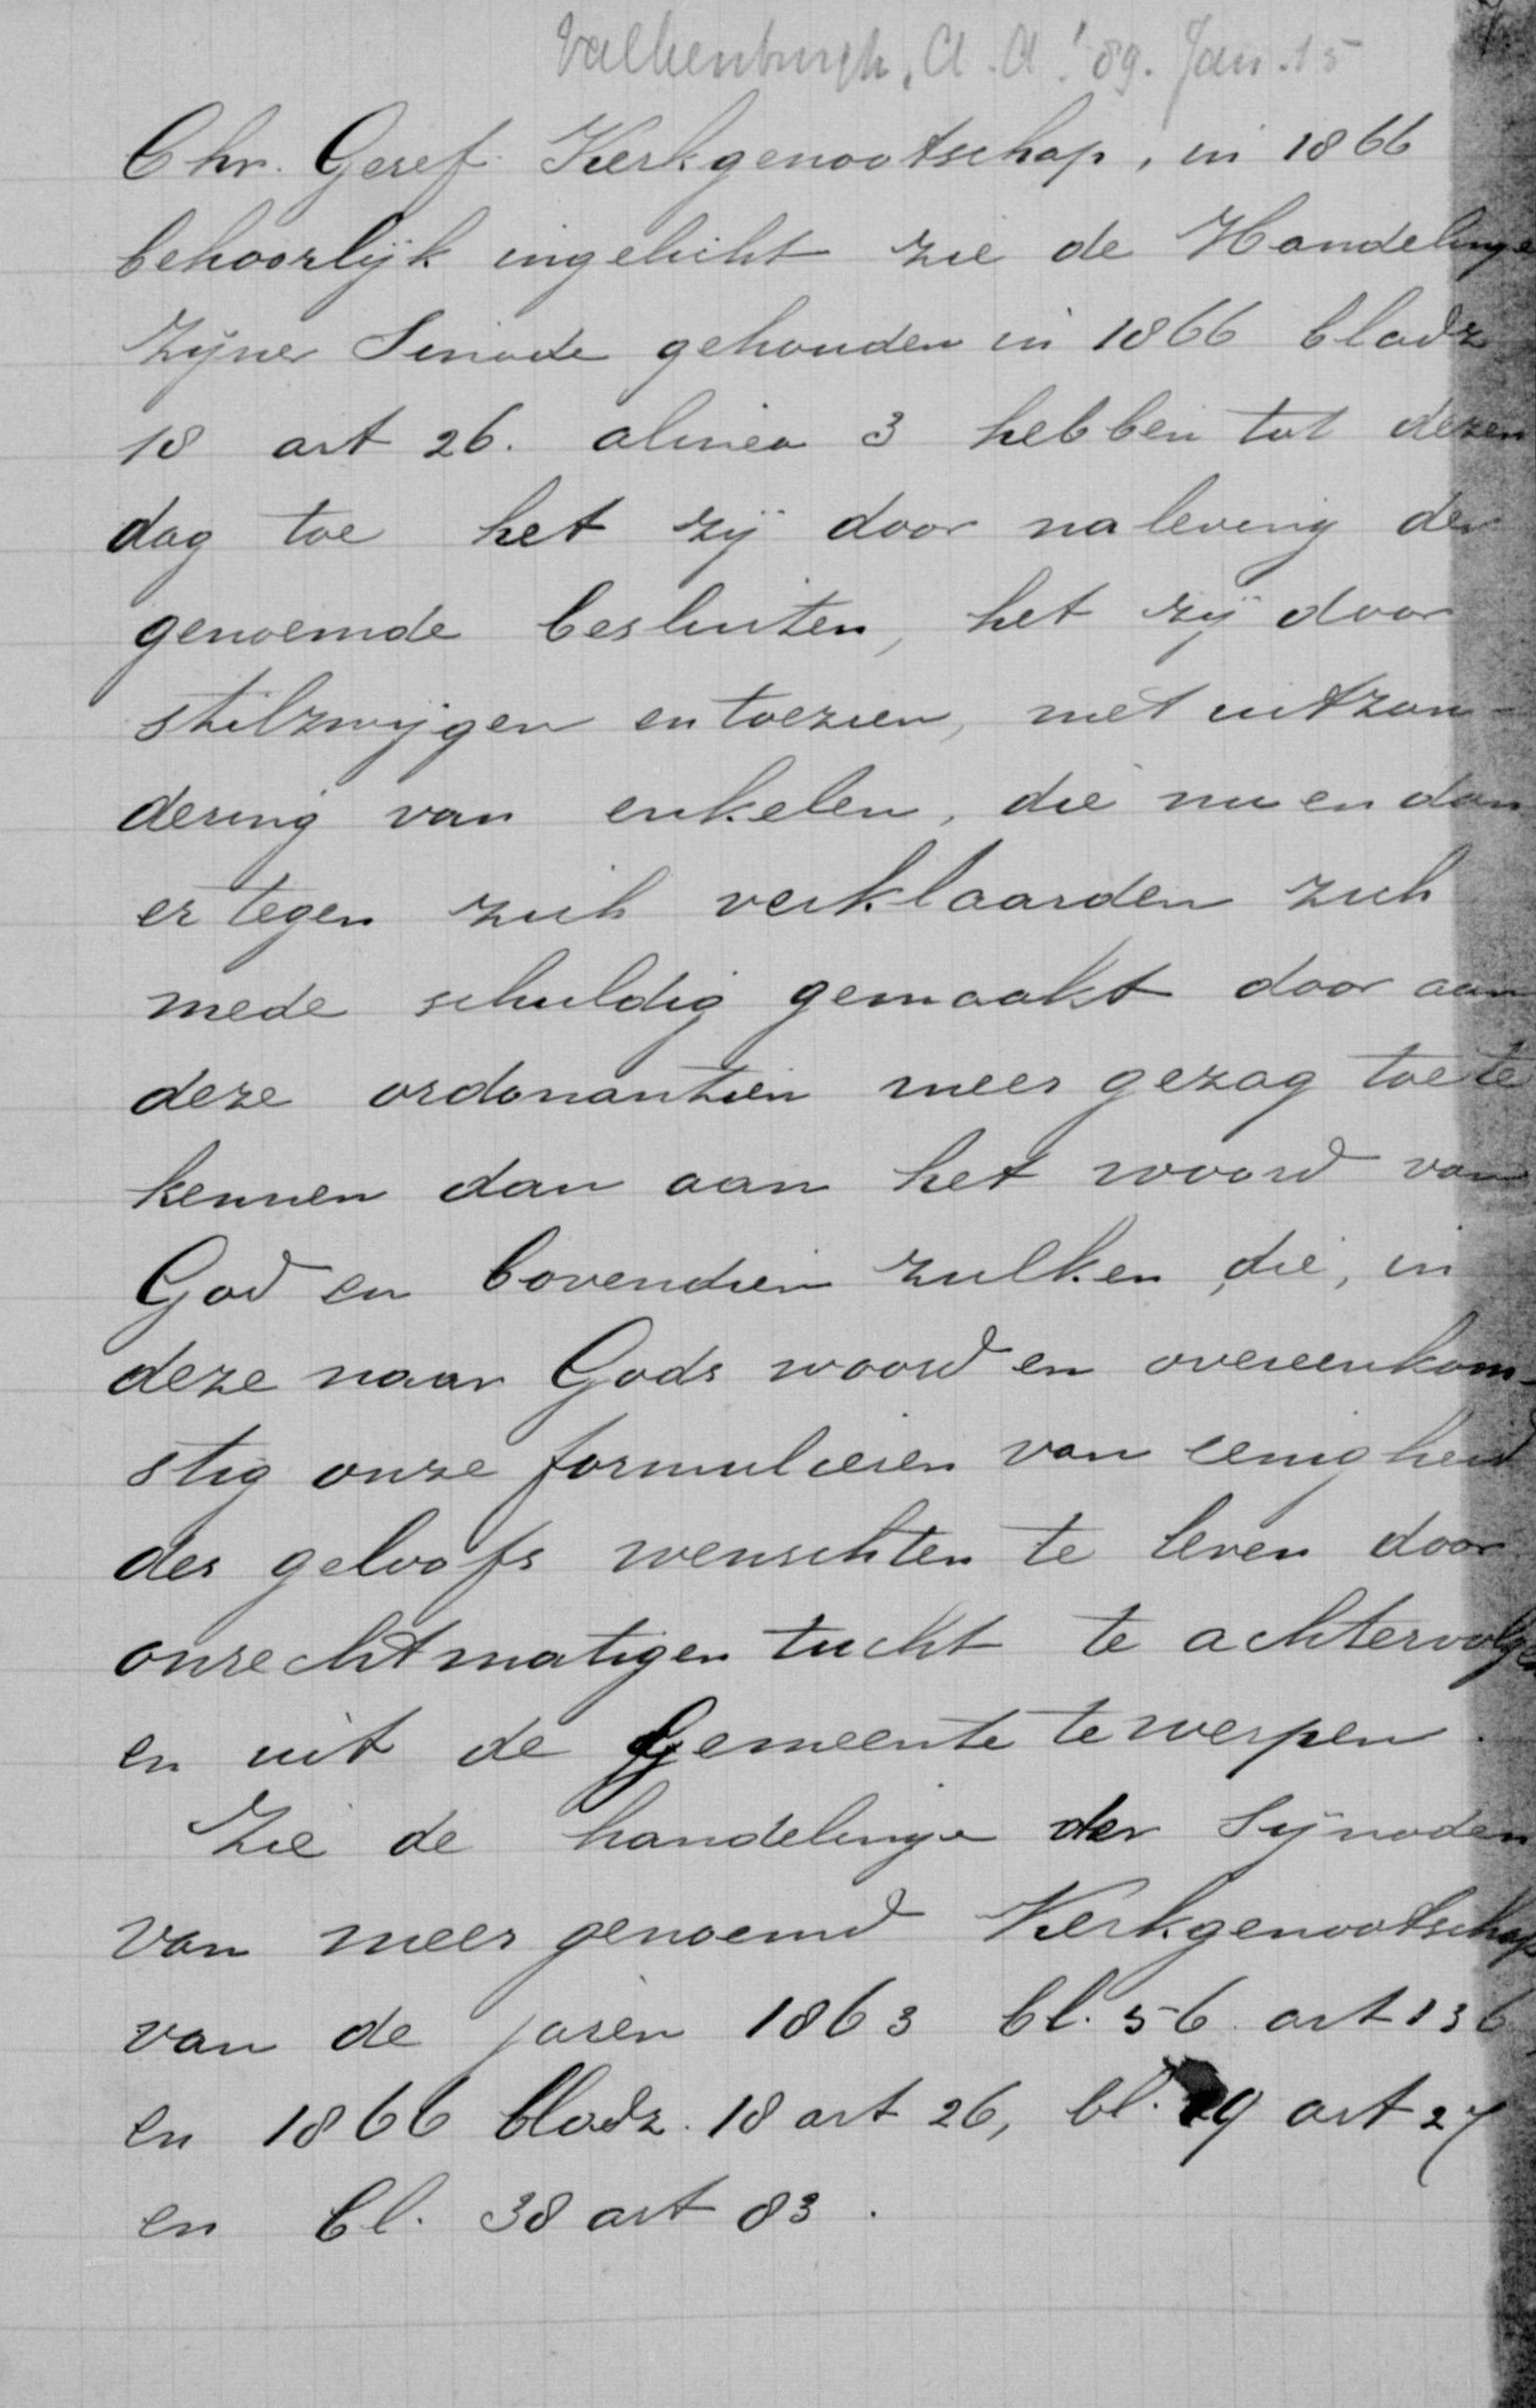 Valkenburgh, A. A. '89. Jan. 15
Chr. Geref. Kerkgenootschap, in 1866
behoorlijk ingelicht zie de Handelinge
Zijner Sinode gehouden in 1866 bladz
18 art 26. alinea 3 hebben tot dezen
dag toe het zij door naleving der
genoemde besluiten, het zij door
stilzwijgen en toezien, met uitzon-
dering van enkelen, die nu en dan
er tegen zich verklaarden zich
mede schuldig gemaakt door aan
deze ordonantien meer gezag toe te
kennen dan aan het woord van
God en bovendien zulken, die, in
deze naar Gods woord en overeenkom-
stig onze formulieren van eenigheid
des geloofs wenschten te leven door
onrechtmatigen tucht te achtervolgen
en uit de Gemeente te werpen.
Zie de handelinge der Sijnoden
van meer genoemd Kerkgenootschap
van de jaren 1863 bl. 56 art 136
en 1866 bladz. 18 art 26, bl. 29 art 27
en bl. 38 art 83.